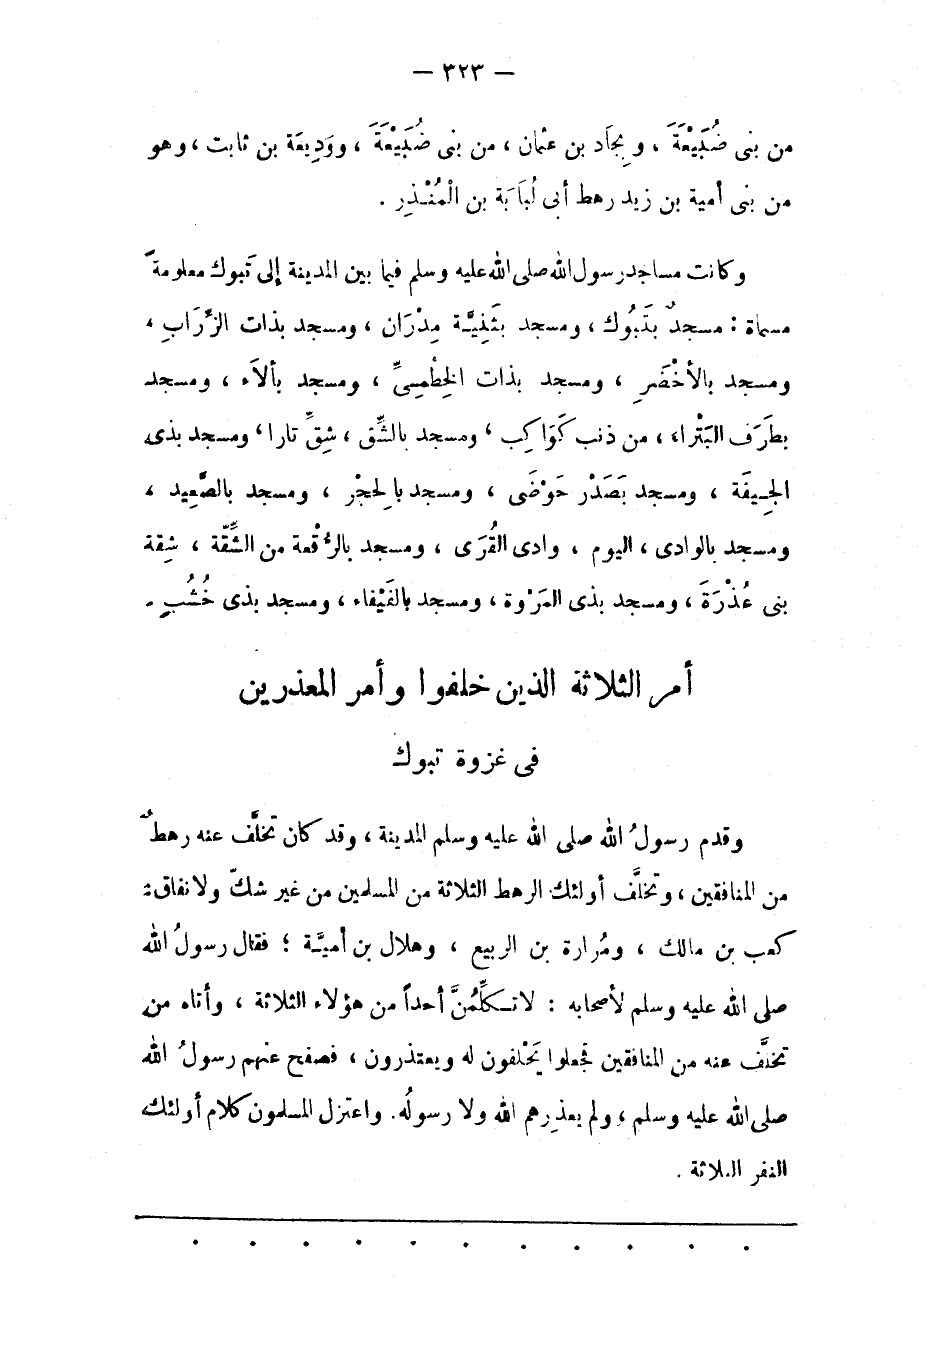 — ٣٢٣ —
من بنى ضُبَيْعَةَ ، و بِجاَد بن عثمان ، من بنى ضُبَيْعَةَ ، ووَدِيعَة بن ثابت ، وهو
من بنى أمية بن زيد رهط أبى لُبَابَة بن الْمُنْذِر .
وكانت مساجد رسول الله صلى الله عليه وسلم فيما بين المدينة إلى تَبوك معلومةً
مسماة : مسجدٌ بتَبُوك ، ومسجد بثَنِيَّة مِدْرَان ، ومسجد بذات الزِّرَاب ،
ومسجد بالأخْضَر ، ومسجد بذات الخِطْمِىِّ ، ومسجد بألآَء ، ومسجد
بطَرَف البَتْراء ، من ذنب كَوَاكِب ، ومسجد بالشِّق ، شِقِّ تارا ، ومسجد بذى
الجِيفَة ، ومسجد بَصَدْر حَوْضَى ، ومسجد بالحِجْر ، ومسجد بالصَّعِيد ،
ومسجد بالوادى ، اليوم ، وادى القُرَى ، ومسجد بالرُّقْعة من الشِّقّة ، شِقة
بنى عُذْرَةَ ، ومسجد بذى المَرْوة ، ومسجد بالفَيْفاء ، ومسجد بذى خُشُبٍ .
أمر الثلاثة الذين خلفوا وأمر المعذرين
فى غزوة تبوك
وقدم رسولُ الله صلى الله عليه وسلم المدينة ، وقد كان تخلَّف عنه رهطٌ
من المنافقين ، وتخلَّف أولئك الرهط الثلاثة من المسلمين من غير شكّ ولا نفاق :
كعب بن مالك ، ومُرارة بن الربيع ، وهلال بن أميَّة ؛ فقال رسولُ الله
صلى الله عليه وسلم لأصحابه : لا تكلِّمُنَّ أحداً من هؤلاء الثلاثة ، وأتاه من
تخلَّف عنه من المنافقين فجعلوا يَحْلفون له ويعتذرون ، فصفح عنهم رسولُ الله
صلى الله عليه وسلم ، ولم يعذِرهم الله ولا رسولُه . واعتزل المسلمون كلام أولئك
النفر الثلاثة .